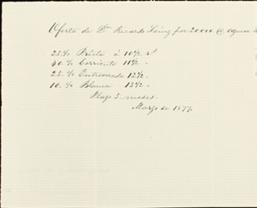 Oferta de Dn Ricardo por 20000 @
25 % Prieta á 10½
40 % Corriente 11½ "
25 % Entreverada 12½ "
10 % Blanca 13½ "
Plazo 3 meses
Marzo de 1877